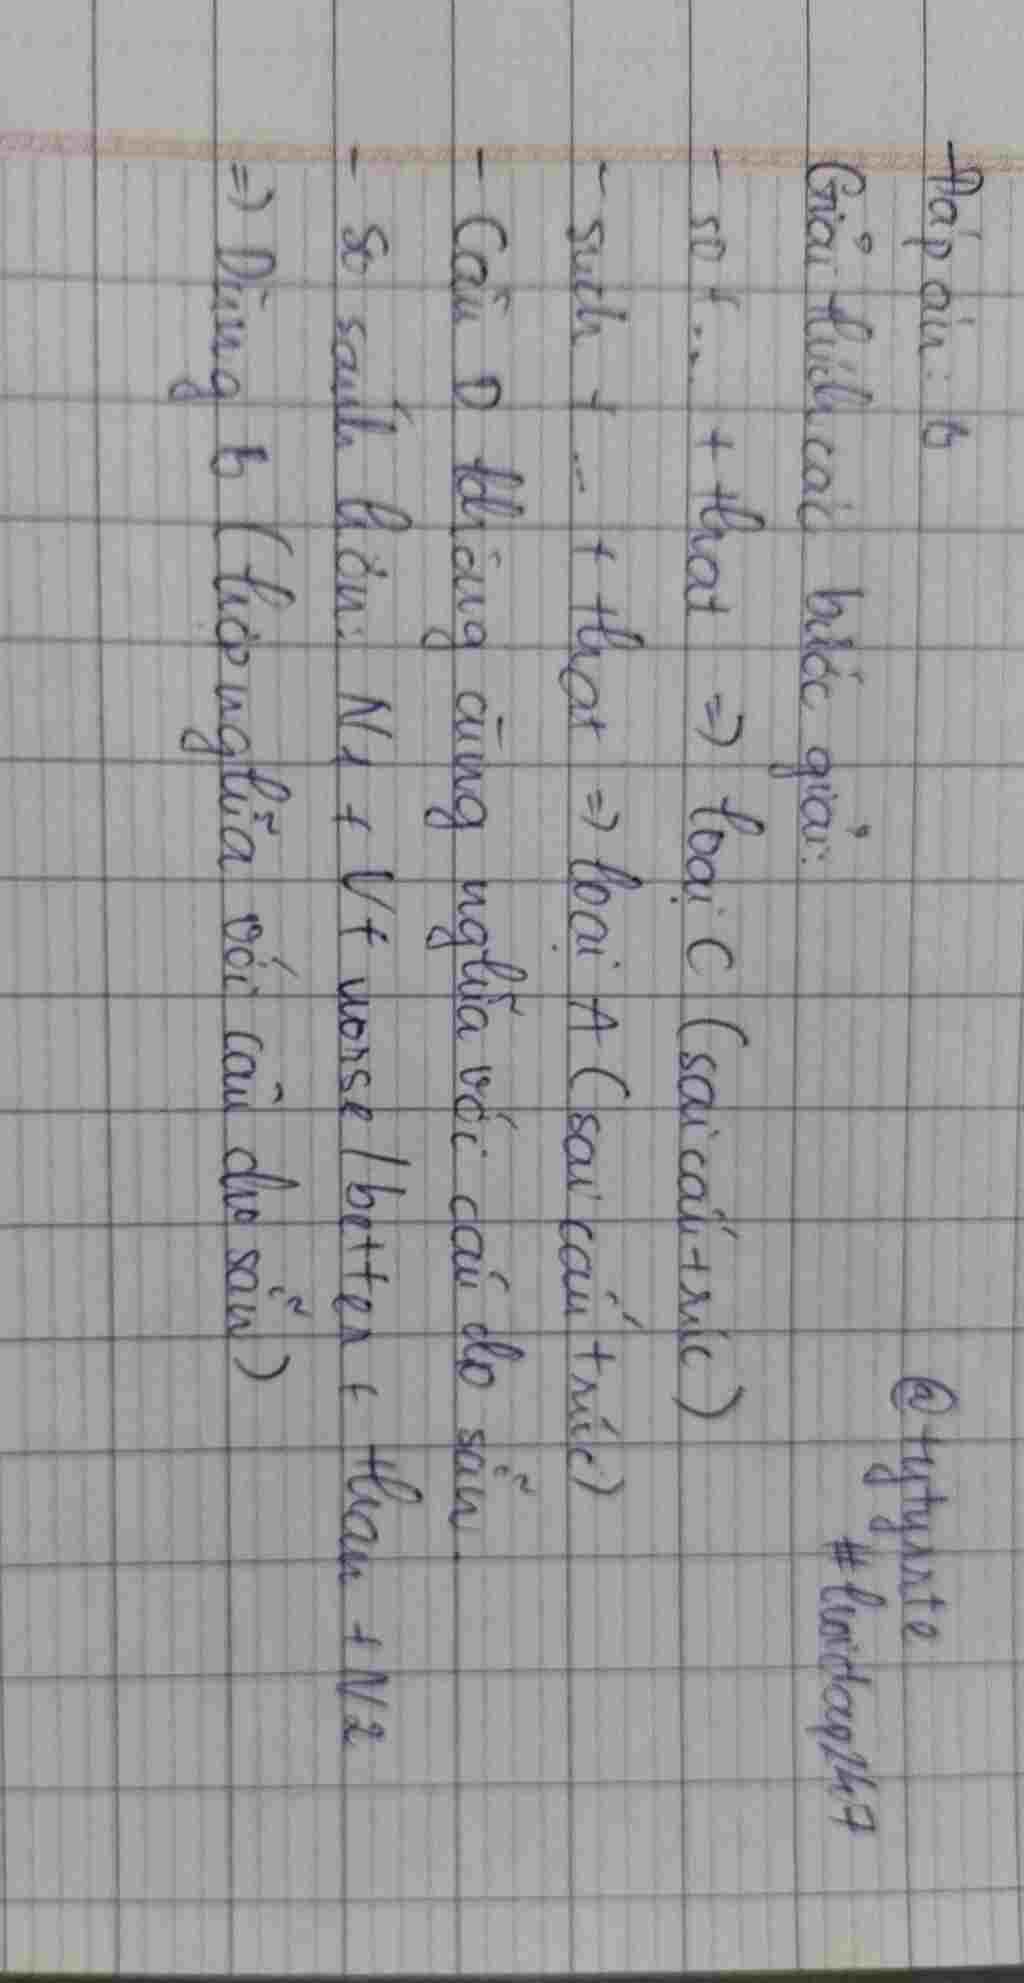 Đáp án: b
@tytyrrte
#hoidap247
Giải thích các bước giải:
- so + ... + that => loại C (sai cấu trúc)
- such + ... + that => loại A (sai cấu trúc)
- Câu D không cùng nghĩa với câu cho sẵn
- So sánh hơn: N1 + V + worse/better + than + N2
=> Dùng b (hợp nghĩa với câu cho sẵn)